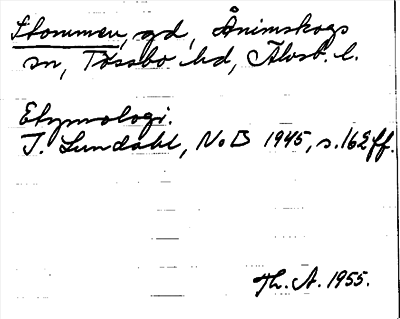 Stommen, gd, Ånimskogs
sn, Tössbo hd, Älvsb. l.
Etymologi.
I. Lundahl, NoB 1945, s. 162 ff.
Th. A. 1955.